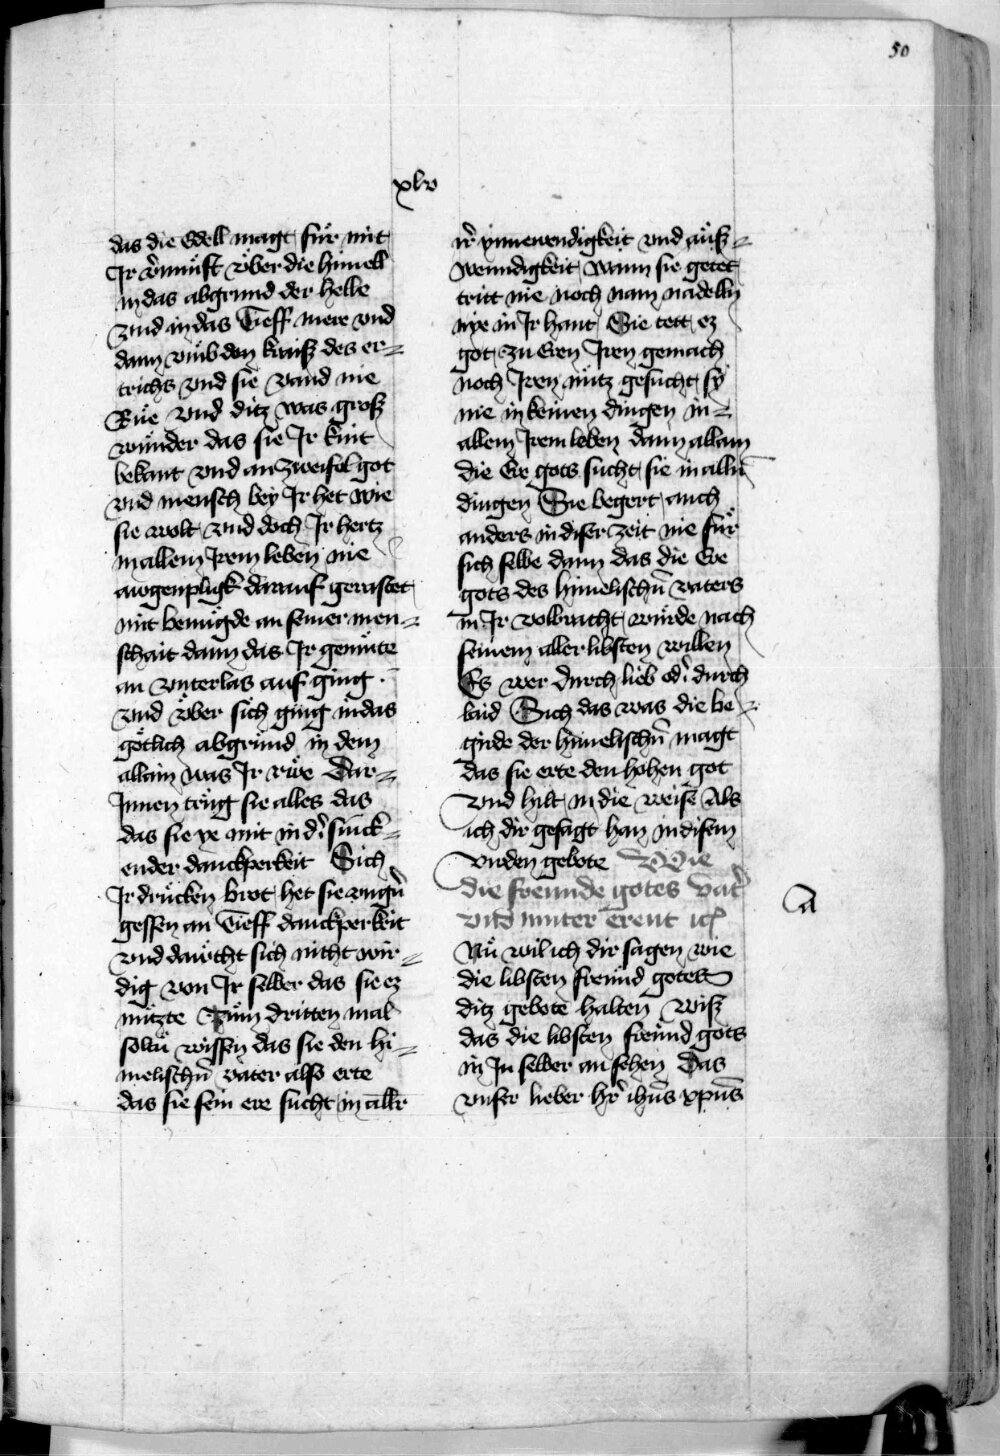 50
xlv
das die Edell magt für mit
Ir v̄nunft vber die himell
in das abgrund der helle
vnd in das Tieff mere vnd
dann vmb den kraiß des er=
trichs vnd sie vand nie
Rue vnd ditz was groß
wunder das sie Ir kint
bekant vnd an zweifel got
vnd mensch bey Ir het wie
sie wolt vnd doch Ir hertz
in allem Irem leben nie
augenplick darauf gerastet
mit benügde an seiner men=
schait dann das Ir gemüte
an vnterlas auf ging .
vnd vber sich ging in das
götlich abgrund in dem
allain was Ir rwe Dar=
Innen trug sie alles das
das sie ye mit in dͥ
ender danckperkeit Sich
Ir drucken brot het sie
gessen an Tieff danckperkeit
vnd daucht sich nicht wir=
dig von Ir selber das sie ez
nützte Zum dritten mal
soltu wissen das sie den hi=
melischn̄ vater also erte
das sie sein ere sucht in allr
irͬ ynnewendigkeit vnd auß=
wenndigkeit wann sie getet
tritt nie noch nam nadelln
nye in Ir hant Sie tett ez
got zu Eren Iren gemach
noch Iren nutz gesucht sy
nie in keinen dingen in=
allem Irem leben dann allain
die Ere gots sucht sie in alln̄
dingen Sie begert auch
anders in diser zeit nie für
sich selbe dann das die Ere
gots des himelischn̄ vaters
in Ir volbracht würde nach
seinem aller libsten willen
Es wer durch lieb odͥ durch
laid Sich das was die be=
girde der himelischn̄ magt
das sie erte den hohen got
vnd hilt in die weise Als
ich dir gesagt han in disem
virden gebote Wie
die freunde gotes vatͥ
vnd muter erent ic
a
Nu wil ich dir sagen wie
die libsten freund gotes
ditz gebote halten wiß
das die libsten freund gots
in In selber an sehen Das
vnser lieber hr̄ ihūs xp̄us